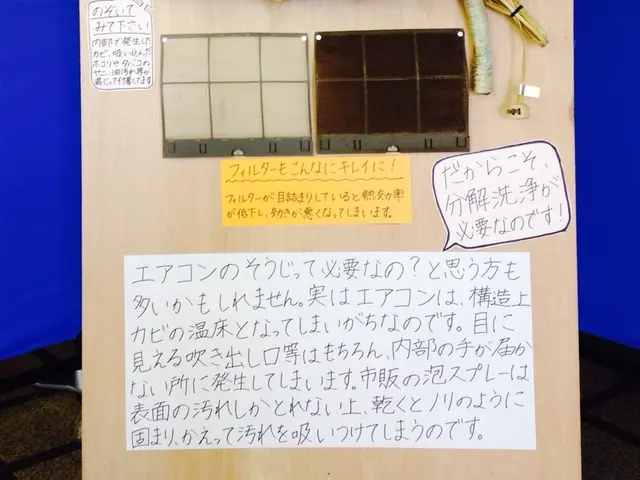 のぞいて
みて下さい
内部で発生した
カビ、吸い込んだ
ホコリやタバコの
ヤニ、油汚れ等が
混じって付着してます
フィルターもこんなにキレイに!
フィルターが目詰まりしていると熱効率
が低下し、効きが悪くなってしまいます。
だからこそ、
分解洗浄が
必要なのです!
エアコンのそうじって必要なの?と思う方も
多いかもしれません。実はエアコンは、構造上
カビの温床となってしまいがちなのです。目に
見える吹き出し口等はもちろん、内部の手が届か
ない所に発生してしまいます。市販の泡スプレーは
表面の汚れしかとれない上、乾くとノリのように
固まり、かえって汚れを吸いつけてしまうのです。